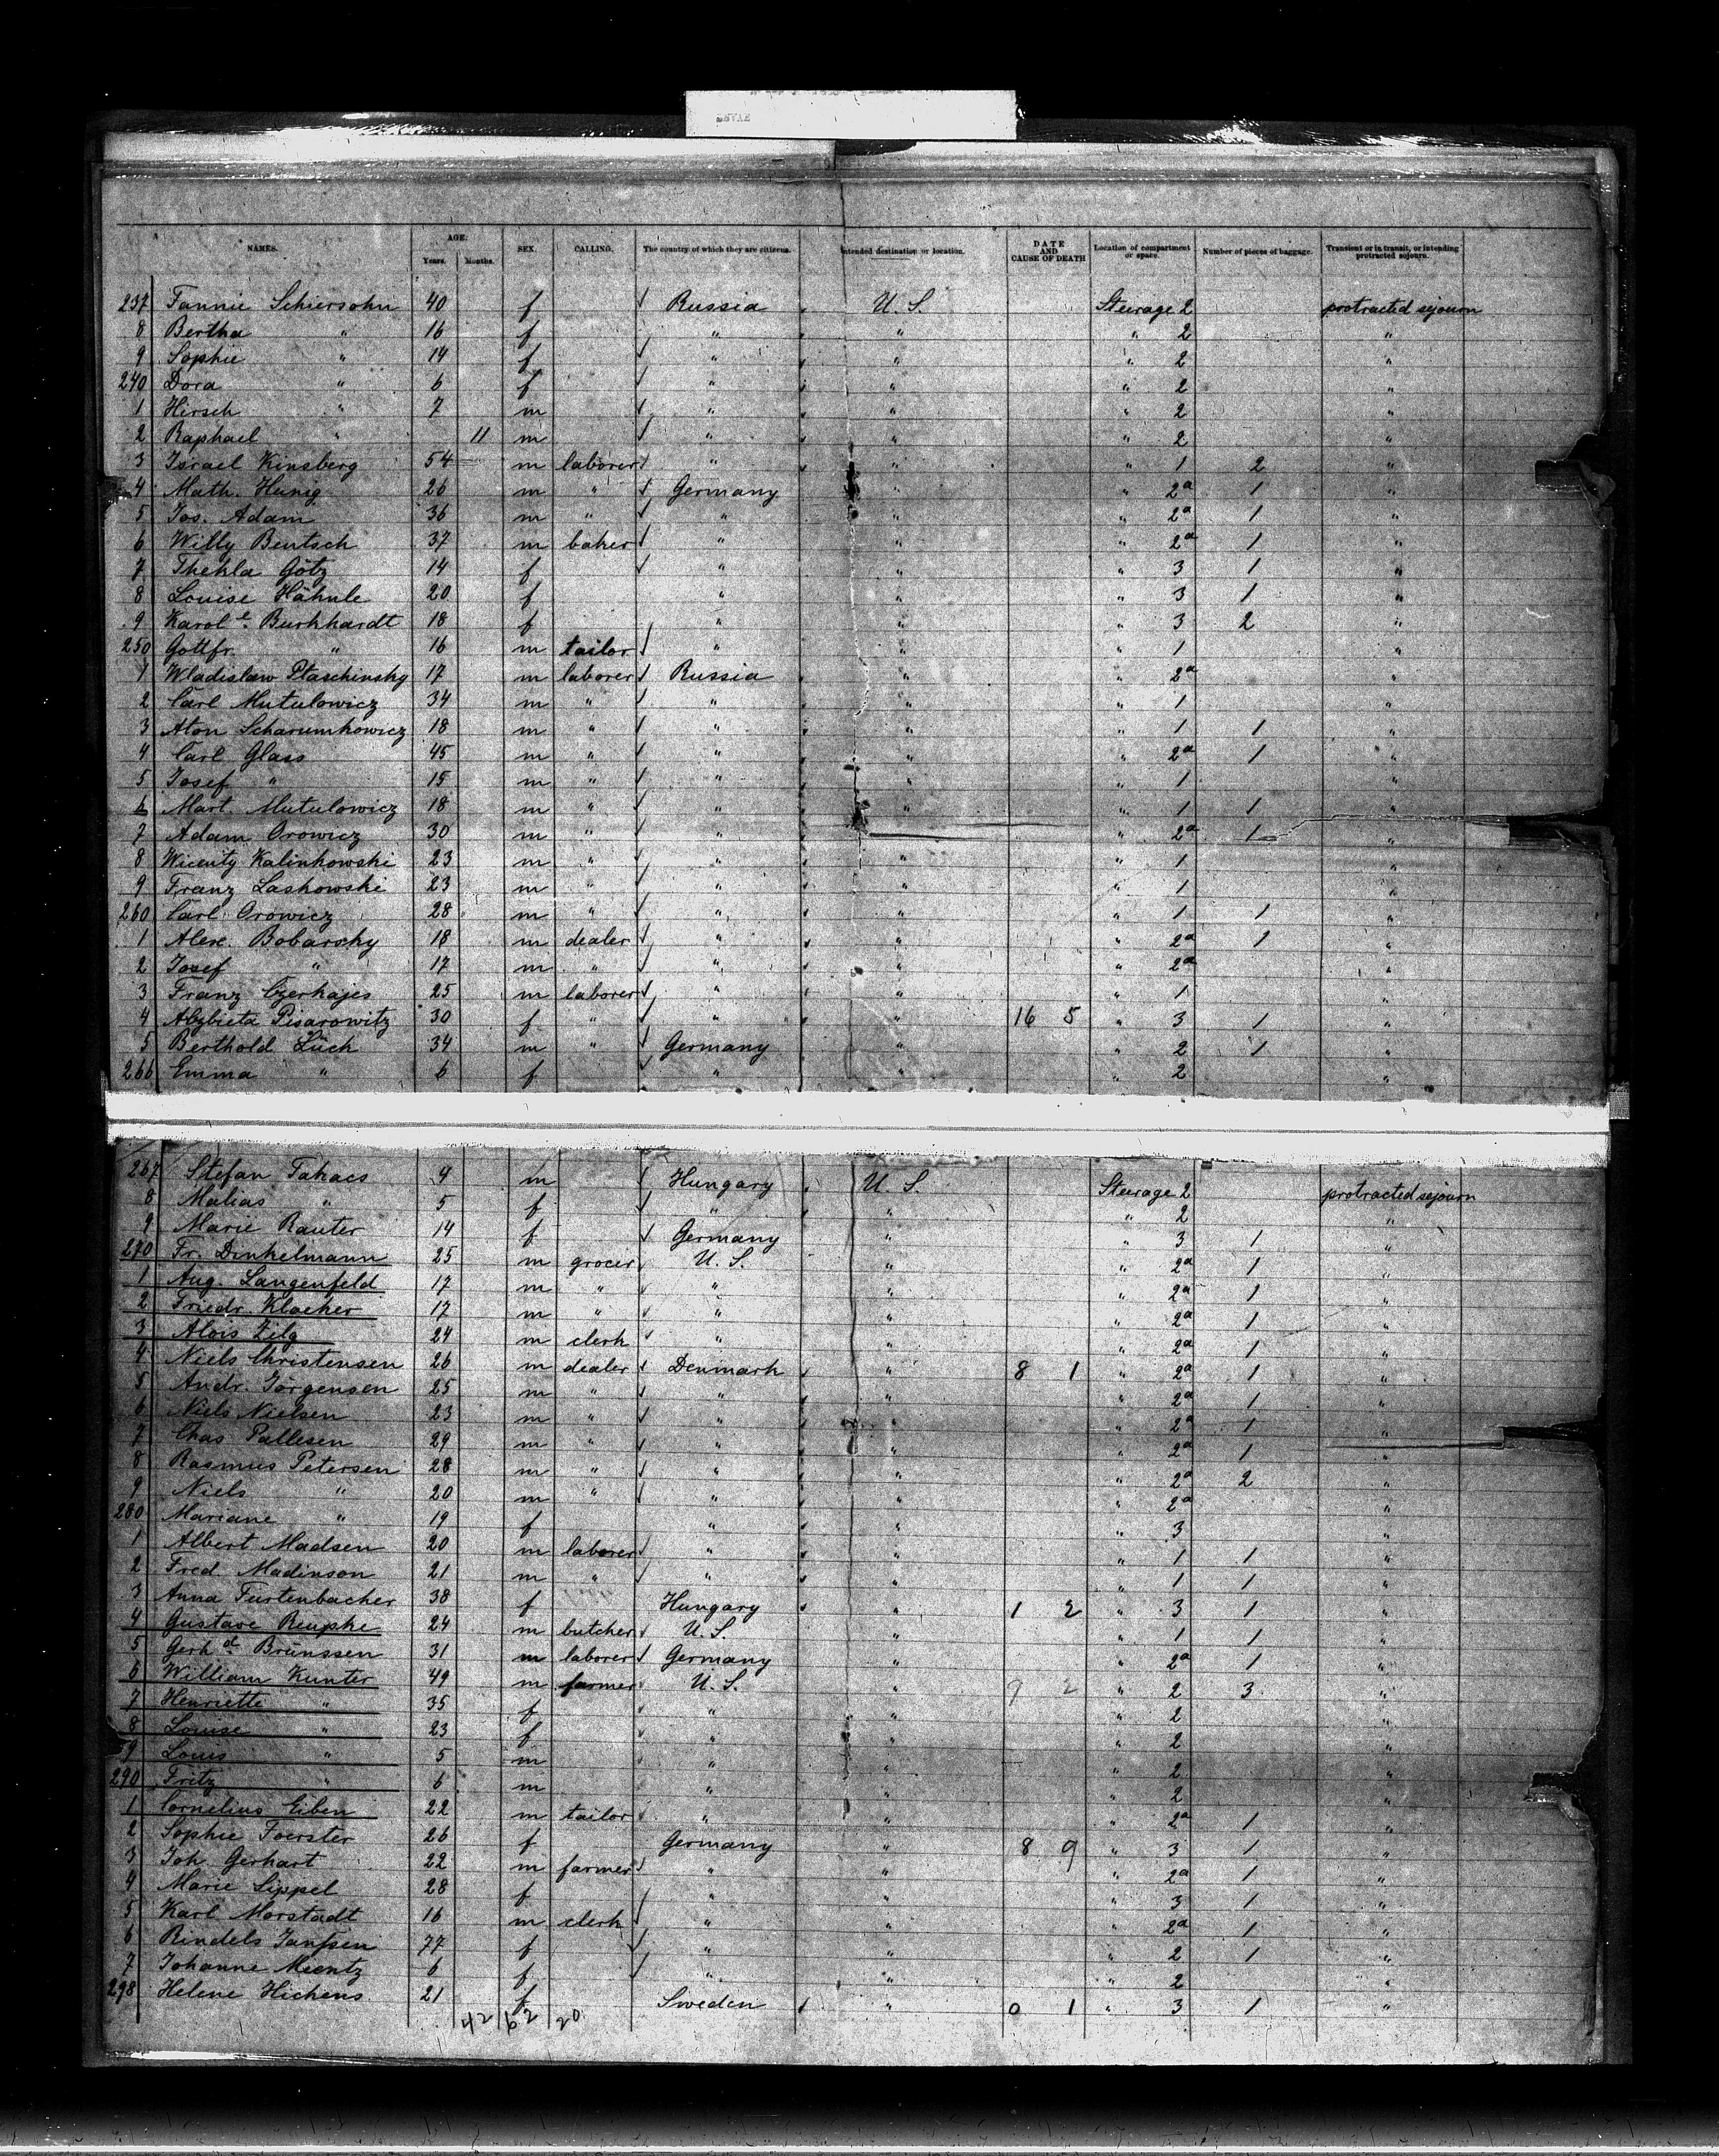 NAMES. AGE. Years. Months. SEX. CALLING. The country of which they are citizens. Intended destination or location. DATE AND CAUSE OF DEATH Location of compartment or space. Number of pieces of baggage. Transient or in transit, or intending protracted sejourn.
237 Fannie Schiersohn 40 f Russia U. S. Steerage 2 protracted sejourn
8 Bertha " 16 f " " " 2 "
9 Sophie " 14 f " " " 2 "
240 Dora " 6 f " " " 2 "
1 Hirsch " 7 m " " " 2 "
2 Raphael " 11 m " " " 2 "
3 Israel Kinsberg 54 m laborer " " " 1 2 "
4 Math. Hunig 26 m " Germany " " 2a 1 "
5 Jos. Adam 36 m " " " " 2a 1 "
6 Willy Bentsch 37 m baker " " " 2a 1 "
7 Thekla Götz 14 f " " " 3 1 "
8 Louise Hähnle 20 f " " " 3 1 "
9 Karole. Burkhardt 18 f " " " 3 2 "
250 Gottfr. " 16 m tailor " " " 1 "
1 Wladislaw Ptaschinsky 17 m laborer Russia " " 2a
2 Carl Mutulowicz 34 m " " " " 1 "
3 Aton Scharumkowicz 18 m " " " " 1 1 "
4 Carl Glass 45 m " " " " 2a 1 "
5 Josef " 15 m " " " " 1 "
6 Mart. Mutulowicz 18 m " " " " 1 1 "
7 Adam Orowicz 30 m " " " 2a 1 "
8 Wicenty Kalinkowski 23 m " " " " 1 "
9 Franz Laskowski 23 m " " " " 1 "
260 Carl Orowicz 28 m " " " " 1 1 "
1 Alex. Bobarsky 18 m dealer " " " 2a 1 "
2 Josef " 17 m " " " " 2a "
3 Franz Czerkajes 25 m laborer " " " 1 "
4 Alzbieta Pisarowitz 30 f " " " 16 5 " 3 1 "
5 Berthold Lück 34 m " Germany " " 2 1 "
266 Emma " 6 f " " " 2 "
267 Stefan Takacs 4 m Hungary U. S. Steerage 2 protracted sejourn
8 Malias " 5 f " " " 2 "
9 Marie Rauter 14 f Germany " 3 1 "
270 Fr. Dinkelmann 25 m grocer U. S. " " 2a 1 "
1 Aug. Langenfeld 17 m " " " " 2a 1 "
2 Friedr. Klocker 17 m " " " " 2a 1 "
3 Alois Zilg 24 m clerk " " 2a 1 "
4 Niels Christensen 26 m dealer Denmark " 8 1 " 2a 1 "
5 Andr. Jörgensen 25 m " " " " 2a 1 "
6 Niels Nielsen 23 m " " " " 2a 1 "
7 Chas Pallesen 29 m " " " " 2a 1 "
8 Rasmus Petersen 28 m " " " " 2a 2 "
9 Niels " 20 m " " " " 2a "
280 Mariane " 19 f " " " 3 "
1 Albert Madsen 20 m laborer " " " 1 1 "
2 Fred. Madinson 21 m " " " " 1 1 "
3 Anna Furtenbacher 38 f Hungary " 1 2 " 3 1 "
4 Gustave Reupke 24 m butcher U. S. " " 1 1 "
5 Gerhd Brünssen 31 m laborer Germany " " 2a 1 "
6 William Kunter 49 m farmer U. S. " 9 2 " 2 3 "
7 Henriette " 35 f " " " 2 "
8 Louise " 23 f " " " 2 "
9 Louis " 5 m " " " 2 "
290 Fritz " 6 m " " " 2 "
1 Cornelius Eiben 22 m tailor " " " 2a 1 "
2 Sophie Foerster 26 f Germany " 8 9 " 3 1 "
3 Joh. Gerhart 22 m farmer " " " 2a 1 "
4 Marie Lippel 28 f " " " 3 1 "
5 Karl Morstadt 16 m clerk " " " 2a 1 "
6 Rindels Janssen 77 f " " " 2 1 "
7 Johanne Mientz 6 f " " " 2 "
298 Helene Hichens 21 f Sweden " 0 1 " 3 1 "
42 62 20